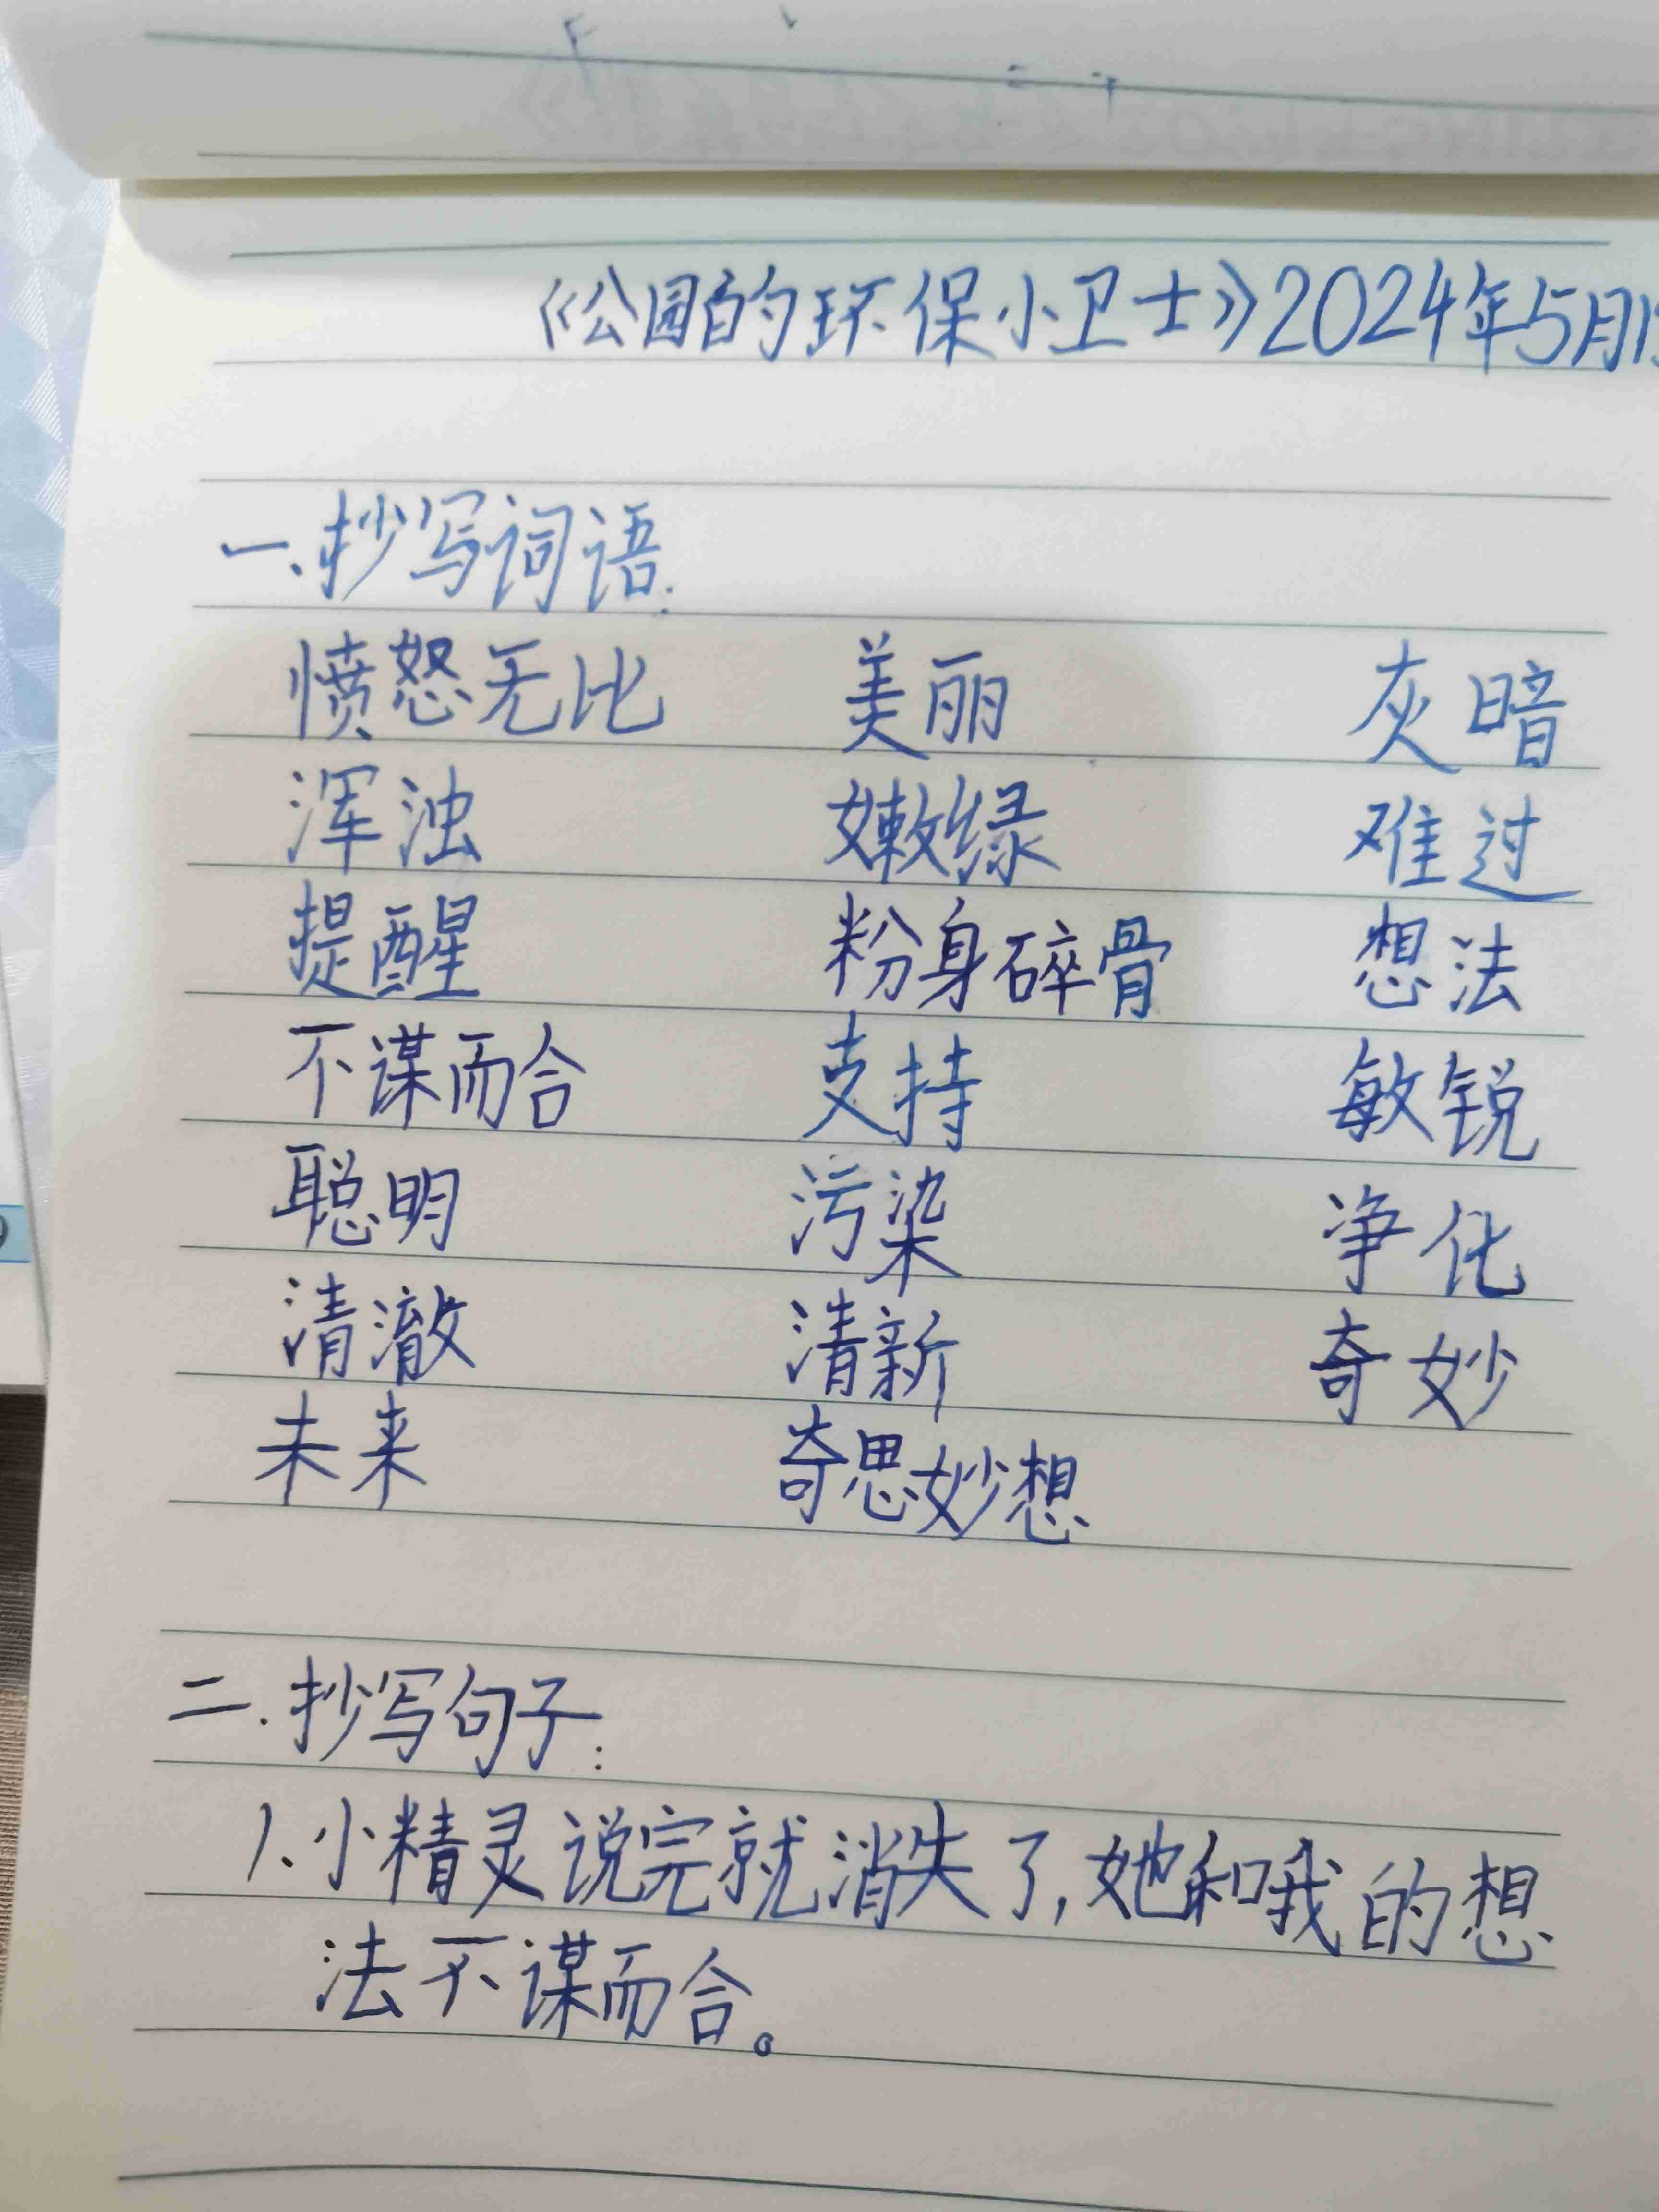 《公园的环保小卫士》2024年5月1
一、抄写词语:
愤怒无比 美丽 灰暗
浑浊 嫩绿 难过
提醒 粉身碎骨 想法
不谋而合 支持 敏锐
聪明 污染 净化
清澈 清新 奇妙
未来 奇思妙想
二.抄写句子:
1、小精灵说完就消失了,她和我的想
法不谋而合。